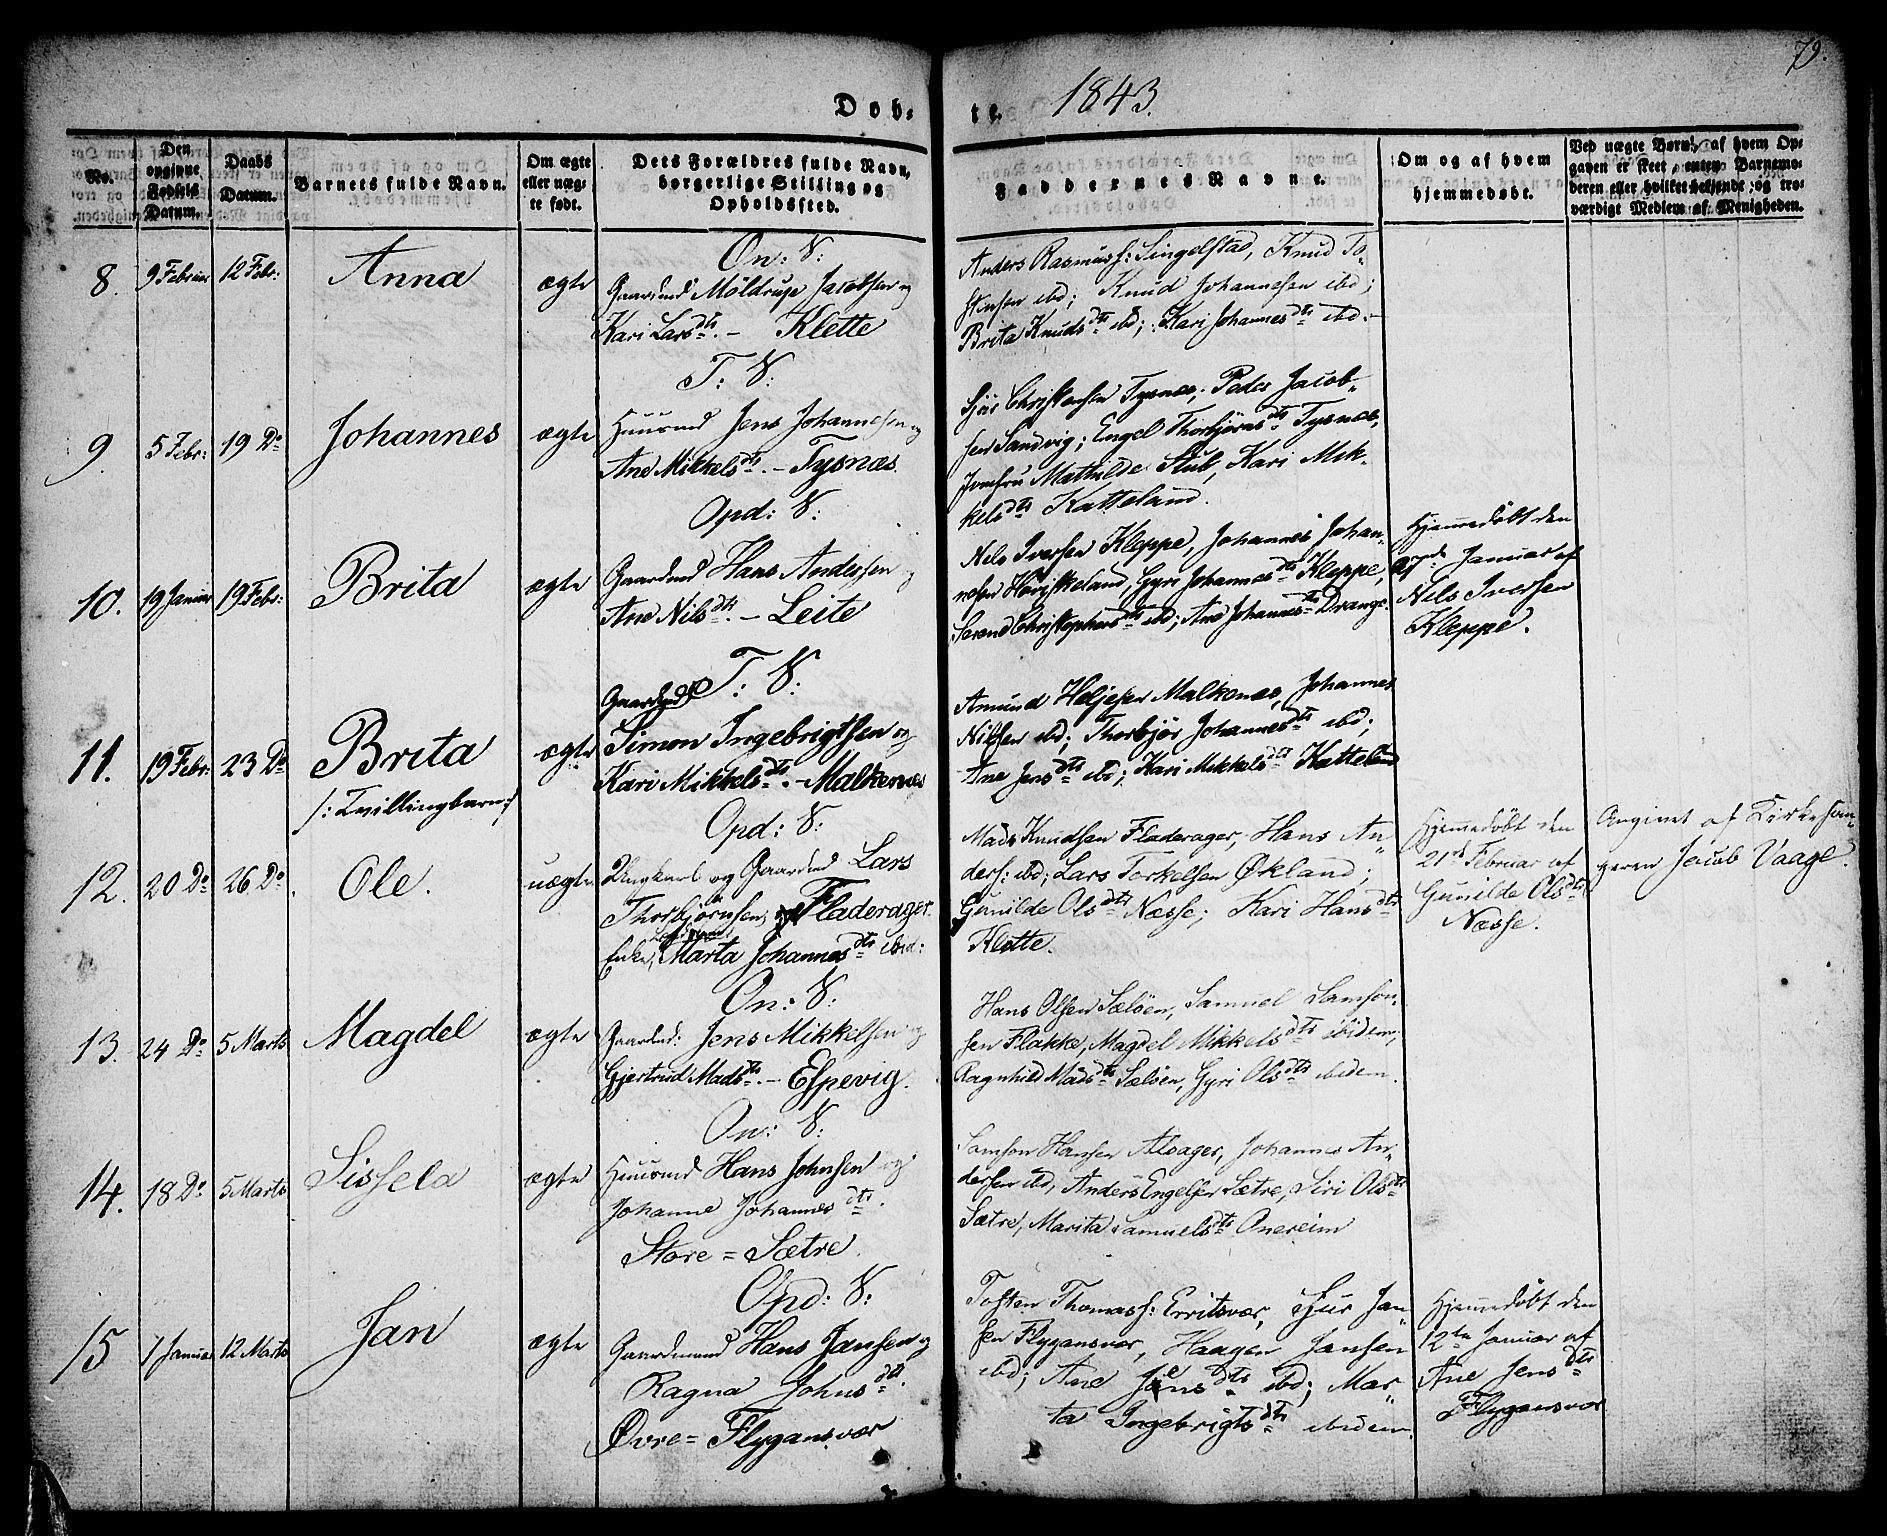 79.
Døb- te. 1843.
No.
Den
opgivne
Fødsels
Datum.
Daabs
Datum.
Barnets fulde Navn.
Om ægte
eller uæg-
te født.
Dets Forældres fulde Navn,
borgerlige Stilling og
Opholdssted.
Faddernes Navne.
Om og af hvem
hjemmedøbt.
Ved uægte Børn: af hvem Op-
gaven er skeet, enten Barnemo-
deren eller hvilket bekjendt og tro-
værdigt Medlem af Menigheden.
8. 9 Februar 12 Febr: Anna ægte
On: S:
Gaardmd Möldrup Jacobsen og
Kari Larsdtr. - Klette
Anders Rasmuss: Singelstad, Knud To-
stensen ibd; Knud Johannesen ibd;
Brita Knudsdtr ibd; Kari Johannesdtr ibd.
9. 5 Febr: 19 Do Johannes ægte
T: S:
Huusmd Jens Johannesen og
Ane Mikkelsdtr. - Tysnæs.
Sjür Christensen Tysnæs, Peder Jacob-
sen Sandvig; Engel Thorbjørnsdtr Tysnæs,
Jomfru Mathilde Stub, Kari Mik-
kelsdtr Katteland.
10. 19 Januar 19 Febr: Brita ægte
Opd: S:
Gaardmd Hans Andersen og
Ane Nilsdtr. - Leite
Nels Iversen Kleppe, Johannes Johan-
nesen Høviskeland, Gyri Johannesdtr Kleppe,
Serene Christophersdtr ibd; Ane Johannesdtr Drange.
Hjemmedøbt den
27de Januar af
Nils Iversen
Kleppe.
11. 19 Febr: 23 Do Brita ægte
/: Tvillingbarn :/
T: S:
Gaardmd
Simon Ingebrigtsen og
Kari Mikkelsdtr. - Malkenæs
Amund Heljesen Malkenæs, Johannes
Nilsen ibd; Thorbjør Johannesdtr ibd;
Ane Jensdtr ibd; Kari Mikkelsdtr Katteland
12. 20 Do 26 Do Ole. uægte
Opd: S:
Ungkarl og Gaardmd Lars
Thorbjørnsen, Fladerager.
Enke, Marta Johannesdtr ibid:
Mads Knudsen Fladerager, Hans An-
ders: ibd; Lars Torkelsen Økland;
Gunilde Olsdtr Næsse; Kari Hansdtr
Klette.
Hjemmedøbt den
21de Februar af
Gunilde Olsdtr
Næsse.
Angivet af Kirkesan-
geren Jacob Vaage.
13. 24 Do 5 Marts Magdel ægte
On: S:
Gaardmd: Jens Mikkelsen og
Gjertrud Madsdtr. - Espevig.
Hans Olsen Sæløen, Samuel Samson-
sen Flakke, Magdel Mikkelsdtr ibidem,
Ragnhild Madsdtr Sæløen, Gyri Olsdtr ibidem.
14. 18 Do 5 Marts Sissela ægte
On: S:
Huusmd Hans Johnsen og
Johanne Johannesdtr.
Store = Sætre.
Samson Hansen Alsager, Johannes An-
dersen ibd, Anders Engelsen Sætre, Siri Olsdtr
Sætre, Marita Samuelsdtr Onereim
15 7 Januar 12 Marts Jan ægte
Opd: S:
Gaardmand Hans Jansen og
Ragna Johnsdtr.
Øvre = Flygansvær
Tosten Thomass: Erritsvær, Sjur Jan-
sen Flygansvær, Haagen Jansen
ibd; Ane Jensdtr ibd; Mar-
ta Ingebrigtsdtr ibidem.
Hjemmedøbt den
12te Januar af
Ane Jensdtr
Flygansvær